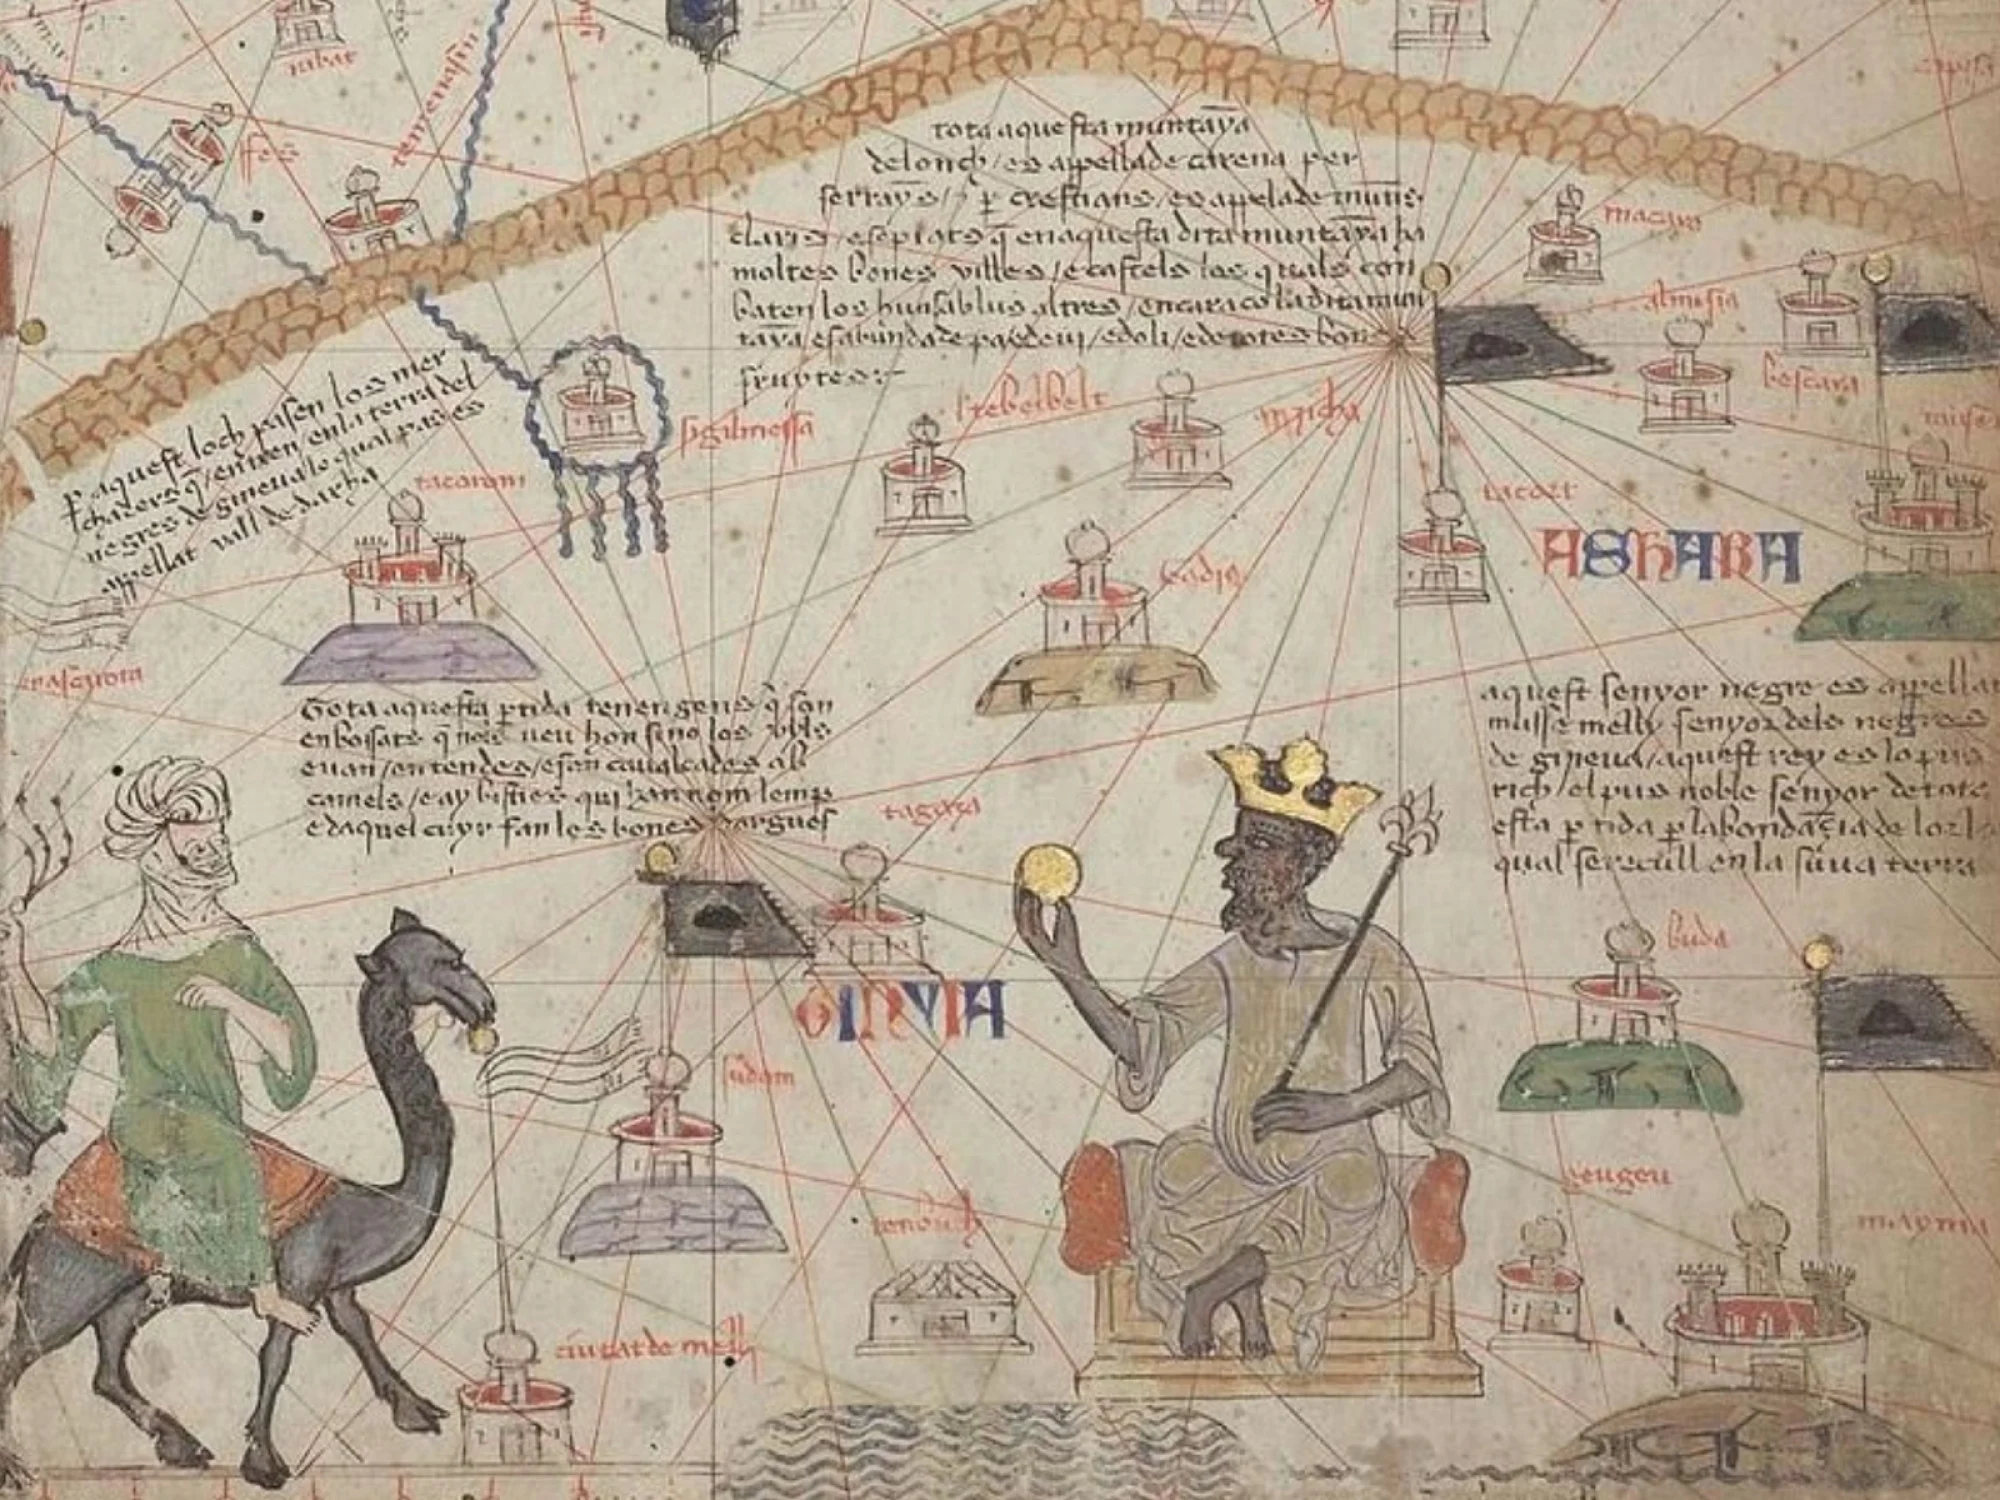 fes
tota aquesta muntaya
de lonch / es appellade carena per
serrayns / e per crestians / es appelade munts
claris e sepiats q̄ en aquesta dita muntaya ha
moltes bones villes / e castels los quals con
baten los huns ab lus altres / encara co la dita mun
taya es abundade pa e de vi / e doli / e de totes bones
fruytes :
p aquest loch pasen los mer
chaders q̄ / entren / en la terra del
negres de gineua lo qual pas es
appellat vall de darha
sigilmessa
tacort
ASHARA
buda
Tota aquesta ptida tenen gens q̄ son
enboisats q̄ nols veu hon sino los uyls
e uan / en tendes / e fan caualcades ab
camels / e ay bisties qui han nom lemp
e daquel cuyr fan les bones dargues
aquest senyor negre es appellat
musse melly senyor dels negres
de gineua / aquest rey es lo pus
rich / el pus noble senyor de tota
esta ptida p labondaçia de lor lo
qual se recull en la sua terra
GINYIA
sudam
tenbuch
geugeu
mayma
ciutat de melly